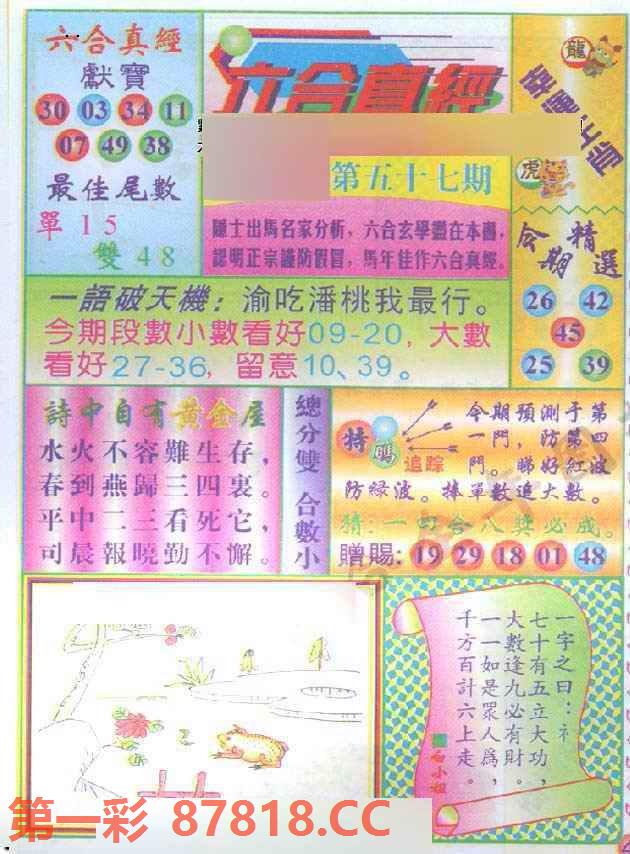 六合真經
獻寶
30 03 34 11
07 49 38
最佳尾數
單 1 5
雙 4 8
六合真經
第五十七期
隱士出馬名家分析，六合玄學盡在本圖，
認明正宗謹防假冒，馬年佳作六合真經。
龍
虎
今期精選
26 42
45
25 39
一語破天機：渝吃潘桃我最行。
今期段數小數看好09-20，大數
看好27-36，留意10、39。
詩中自有黃金屋
水火不容難生存，
春到燕歸三四裏。
平中二三看死它，
司晨報曉勤不懈。
總分雙 合數小
特碼追踪
今期預測于第
一門，防第四
門。睇好紅波
防綠波。捧單數追大數。
猜：一四合八獎必成。
贈賜：19 29 18 01 48
一字之曰：礻
七十有五立大功，
大數逢九必有財。
一一如是眾人為，
千方百計六上走。
白小姐
第一彩 87818.CC